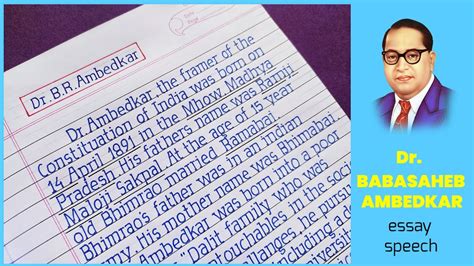 Dr. B.R. Ambedkar
Dr. Ambedkar the framer of the
Constituation of India was born on
14 April 1891 in the Mhow Madhya
Pradesh. His fathers name was Ramji
Maloji Sakpal. At the age of 15 year
old Bhimrao married Ramabai.
Bhimrao's father was in an indian
army. His mother name was Bhimabai.
Ambedkar was born into a poor
"Dalit family who was
in the
he
including a
Dr.
BABASAHEB
AMBEDKAR
essay
speech